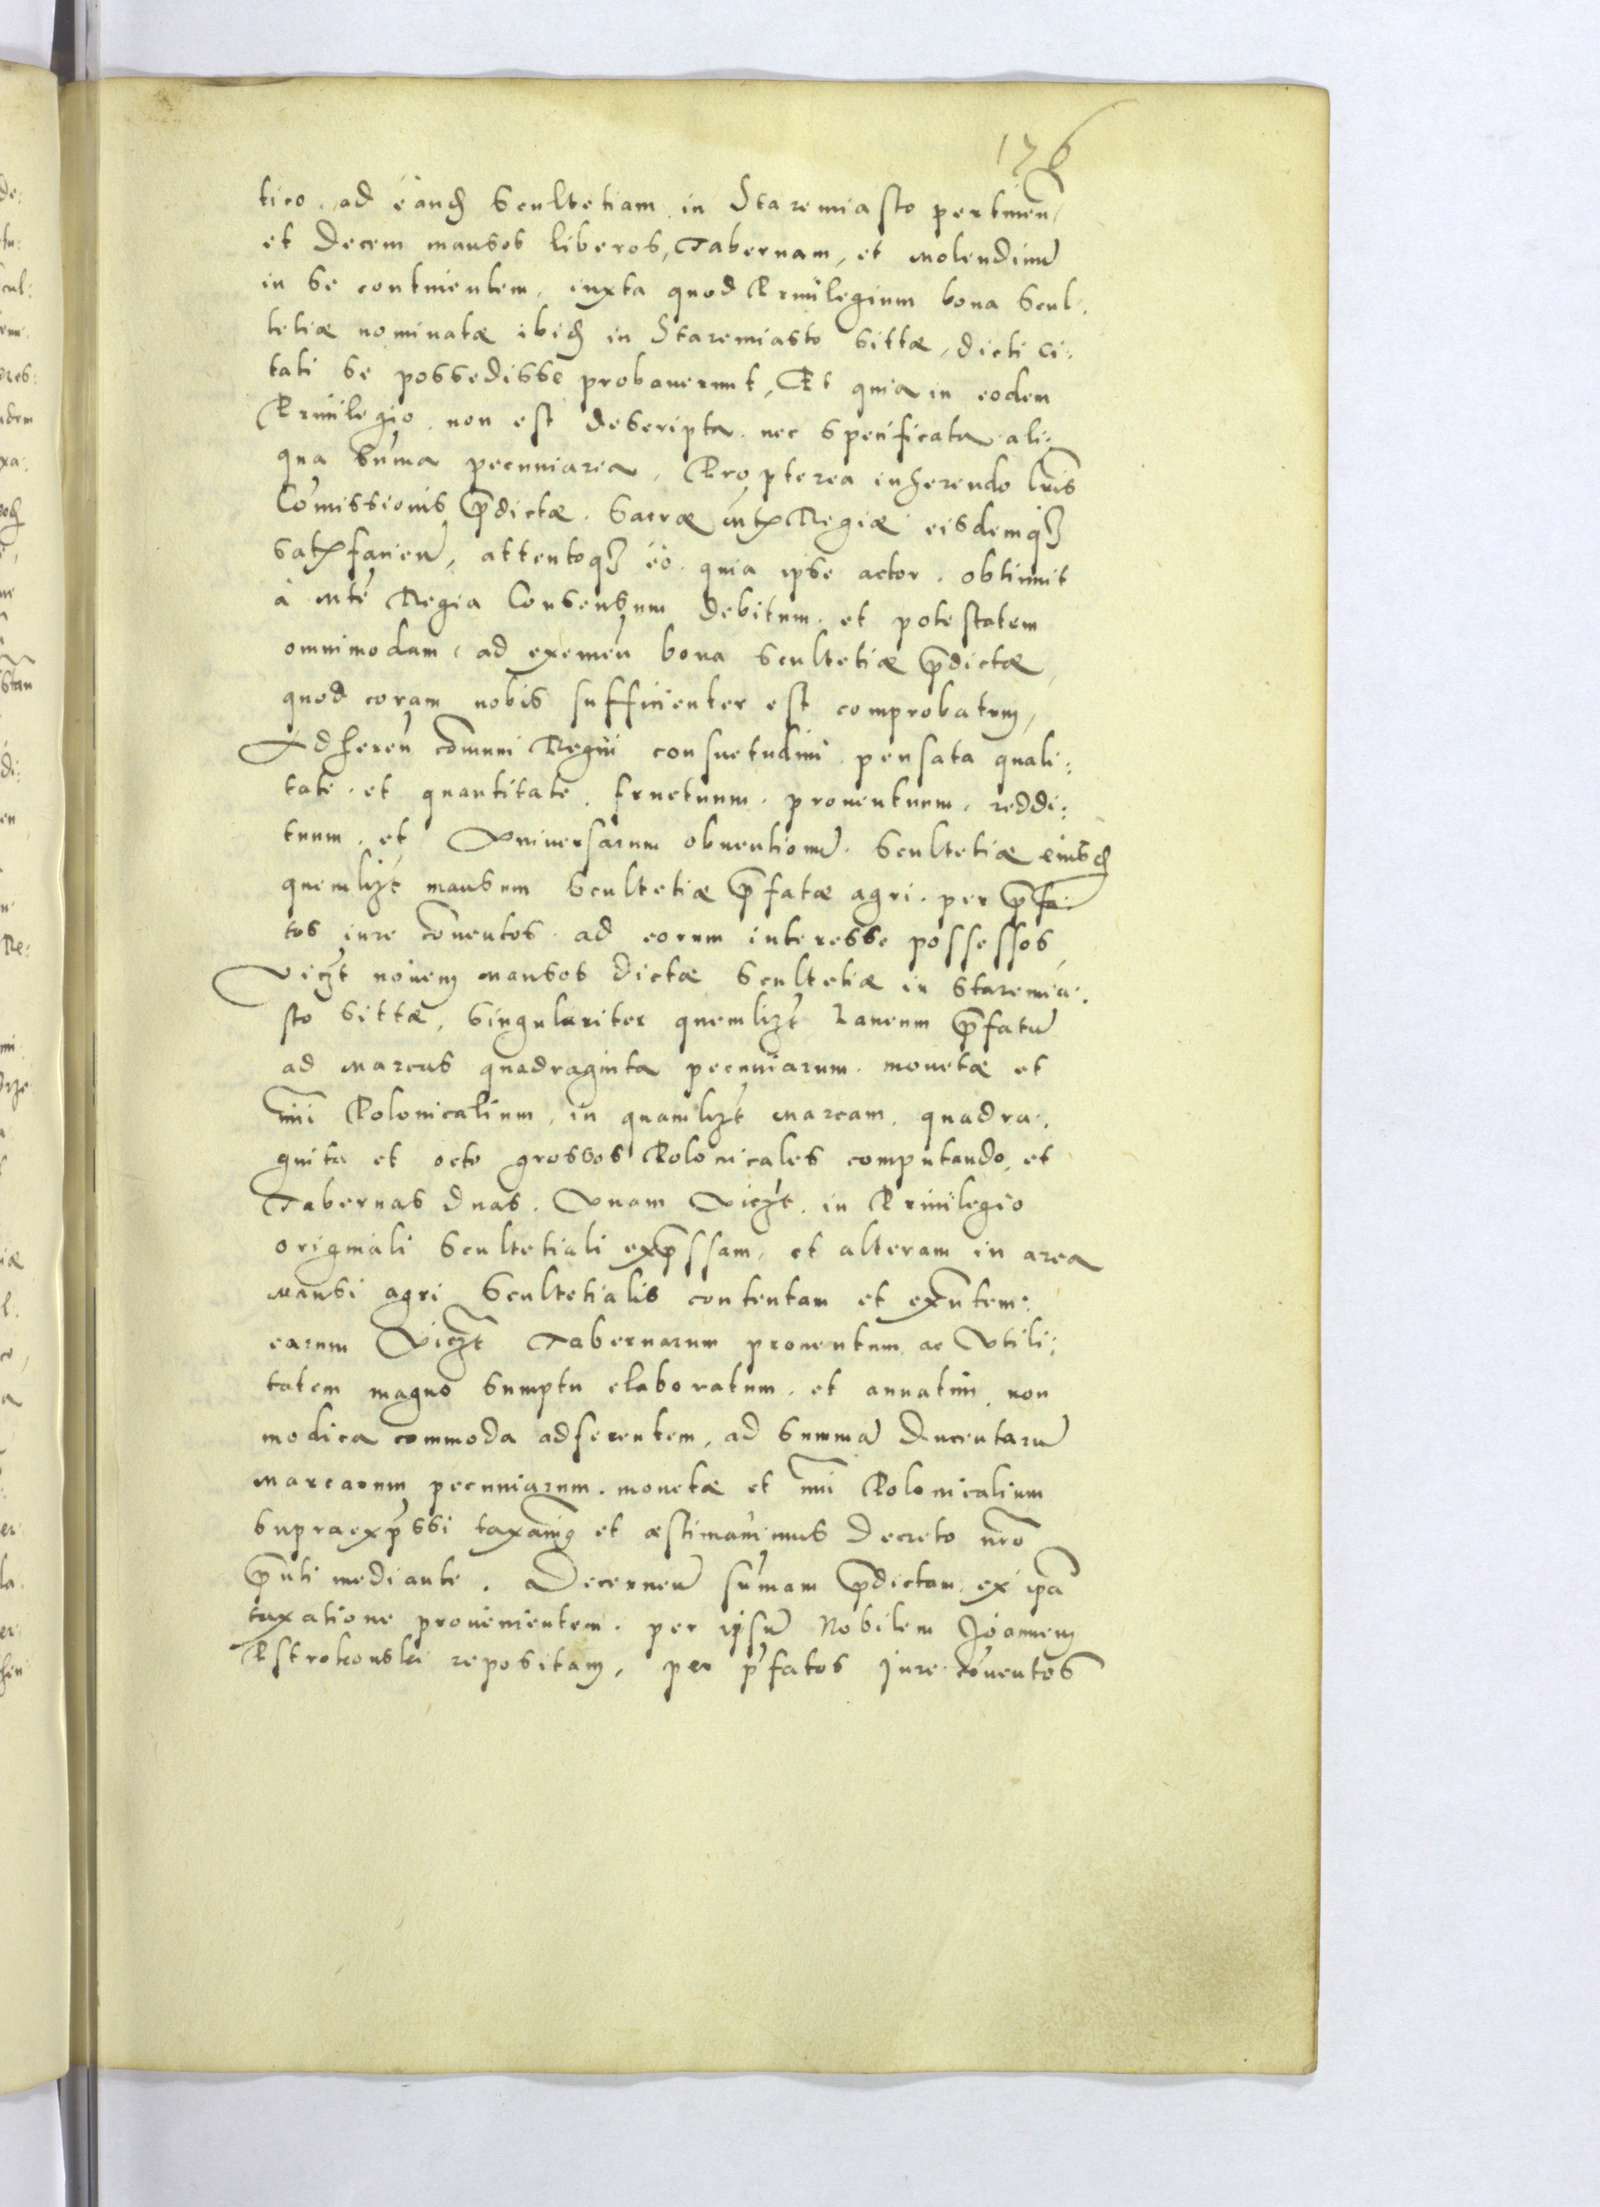 176
tico, ad eandē Scultetiam in Staremiasto pertineñ,
et Decem mansos liberos, Tabernam, et molendinū
in se continentem, iuxta quod Priuilegium bona Scul:
tetiæ nominatæ ibidē in Staremiasto sittæ, dicti ci:
tati se possedisse probauerunt, Et quia in eodem
Priuilegio non est descripta nec specificata ali:
qua sum̃a pecuniaria, Propterea inherendo lrĩs
Com̃issionis p̃dictæ Sacræ Mtĩs Regiæ eisdemq₃
satisfacieñ, attentoq₃ eo quia ipse actor obtinuit
à Mte Regia Consensum debitum et potestatem
omnimodam, ad exemeñ bona Scultetiæ p̃dictæ,
quod coram nobis sufficienter est comprobatum,
Adhereñ com̃uni Regni consuetudini pensata quali:
tate et quantitate fructuum, prouentuum, reddi:
tuum, et Vniuersarum obuentionū Scultetiæ eiusdē
quemlizt mansum Scultetiæ p̃fatæ agri per p̃fa:
tos iure conuentos ad eorum interesse possessos,
Viczt nouem mansos dictæ Scultetiæ in Staremia:
sto sittæ, singulariter quemlizt Laneum p̃fatū
ad marcas quadraginta pecuniarum monetæ et
nũi Polonicalium, in quamlizt marcam quadra:
ginta et octo grossos Polonicales computando, et
Tabernas duas, Vnam Viczt in Priuilegio
originali Scultetiali exp̃ssam, et alteram in area
mansi agri Scultetialis contentam et exñtem:
earum Viczt Tabernarum prouentum ac Vtili:
tatem magno sumptu elaboratum, et annatim non
modica commoda adferentem, ad summā Ducentarū
marcarum pecuniarum monetæ et nũi Polonicalium
supraexp̃ssi taxauimꝰ et æstimauimus Decreto nr̃o
p̃nti mediante. Decerneñ sum̃am p̃dictam ex ip̃a
taxatione prouenientem per ipsū Nobilem Joannem
Pstrokonski repositam, per p̃fatos Jure conuentos